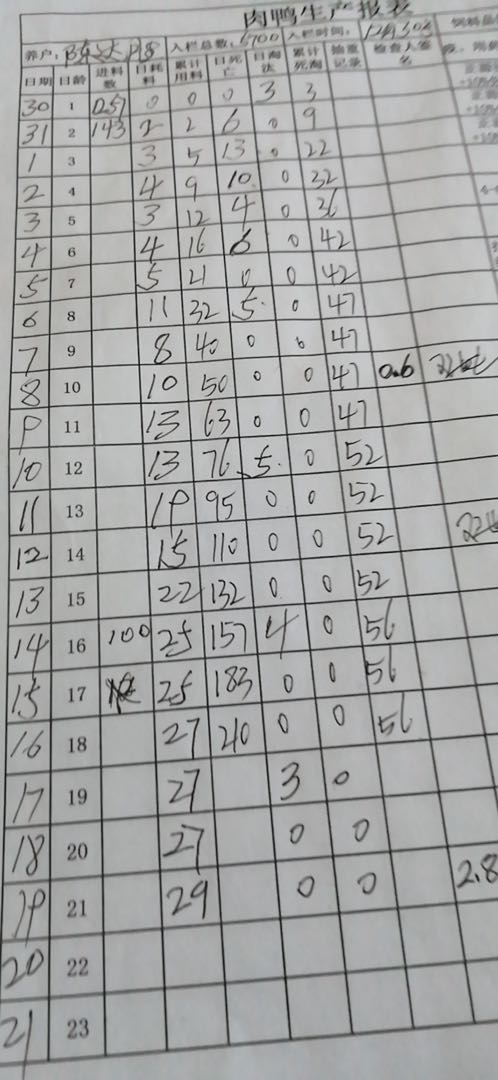 肉鸭生产报表
养户: 陈 入栏总数: 5700 入栏时间: 12月30日
日期 日龄 进料数 日耗料 累计用料 日死亡 日淘汰 累计死淘 抽重记录 检查人签名
30 1 0 0 0 3 3
31 2 143 2 2 6 0 9
1 3 3 5 13 0 22
2 4 4 9 10 0 32
3 5 3 12 4 0 36
4 6 4 16 6 0 42
5 7 5 21 0 0 42
6 8 11 32 5 0 47
7 9 8 40 0 0 47
8 10 10 50 0 0 47 0.6
9 11 13 63 0 0 47
10 12 13 76 5 0 52
11 13 19 95 0 0 52
12 14 15 110 0 0 52
13 15 22 132 0 0 52
14 16 100 25 157 4 0 56
15 17 25 183 0 0 56
16 18 27 210 0 0 56
17 19 27 3 0
18 20 27 0 0
19 21 29 0 0 2.8
20 22
21 23